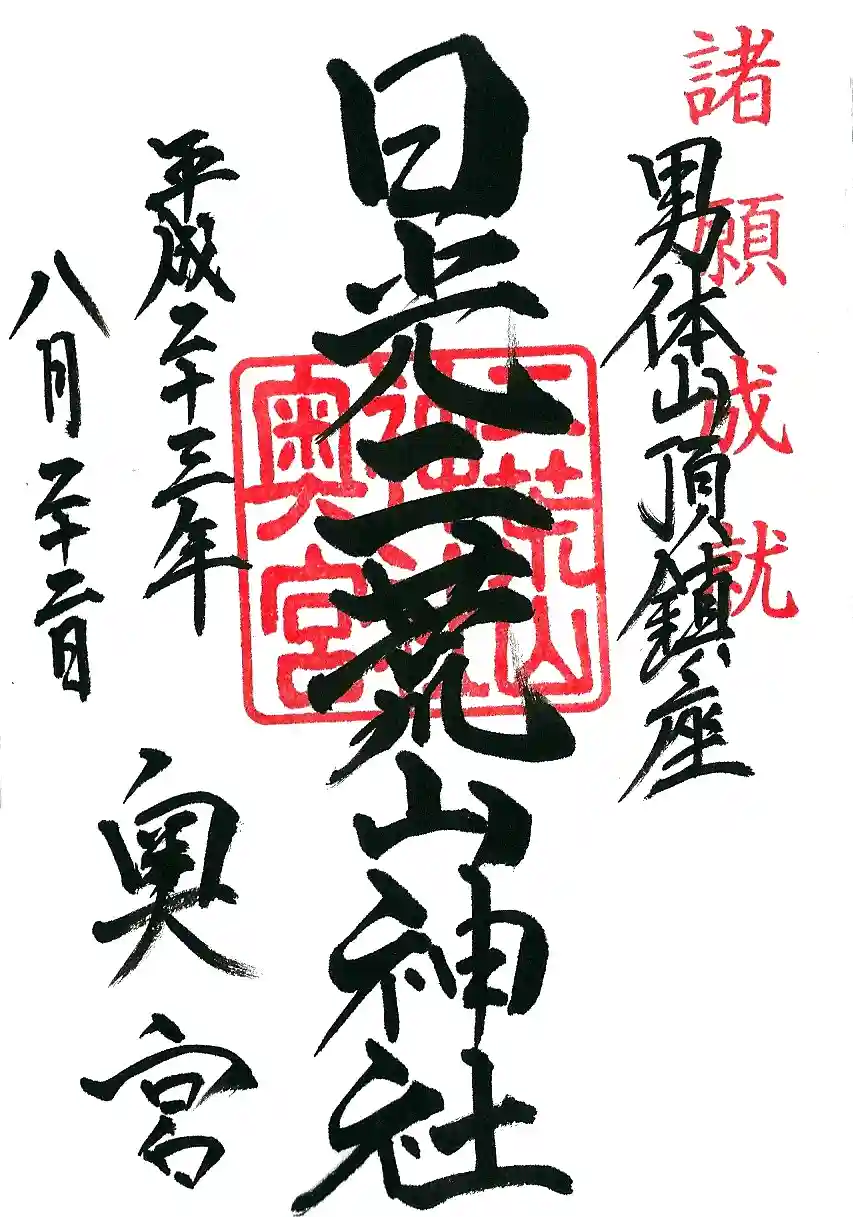 諸願成就
男体山頂鎮座
日光二荒山神社
二荒山
神社
奥宮
平成二十三年
八月二十二日
奥宮